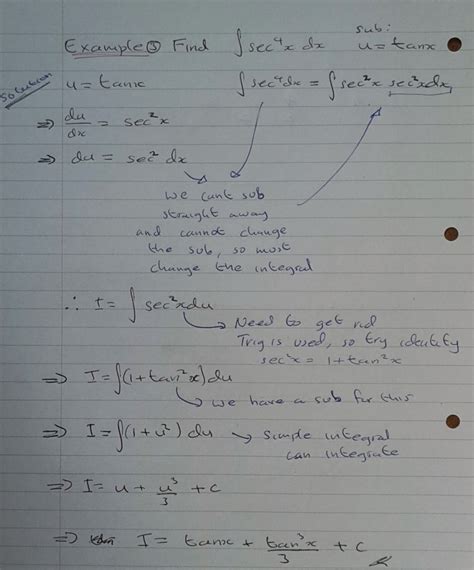 sub:
Example ⑤ Find ∫sec⁴x dx u = tanx
Solution
u = tanx ∫sec⁴dx = ∫sec²x sec²x dx
⇒ du/dx = sec²x
⇒ du = sec² dx
we cant sub
straight away
and cannot change
the sub, so must
change the integral
∴ I = ∫sec²x du
Need to get rid
Trig is used, so try identity
sec²x = 1+tan²x
⇒ I = ∫(1+tan²x)du
we have a sub for this
⇒ I = ∫(1+u²) du → simple integral
can integrate
⇒ I = u + u³/3 + c
⇒ I = tanx + tan³x/3 + c